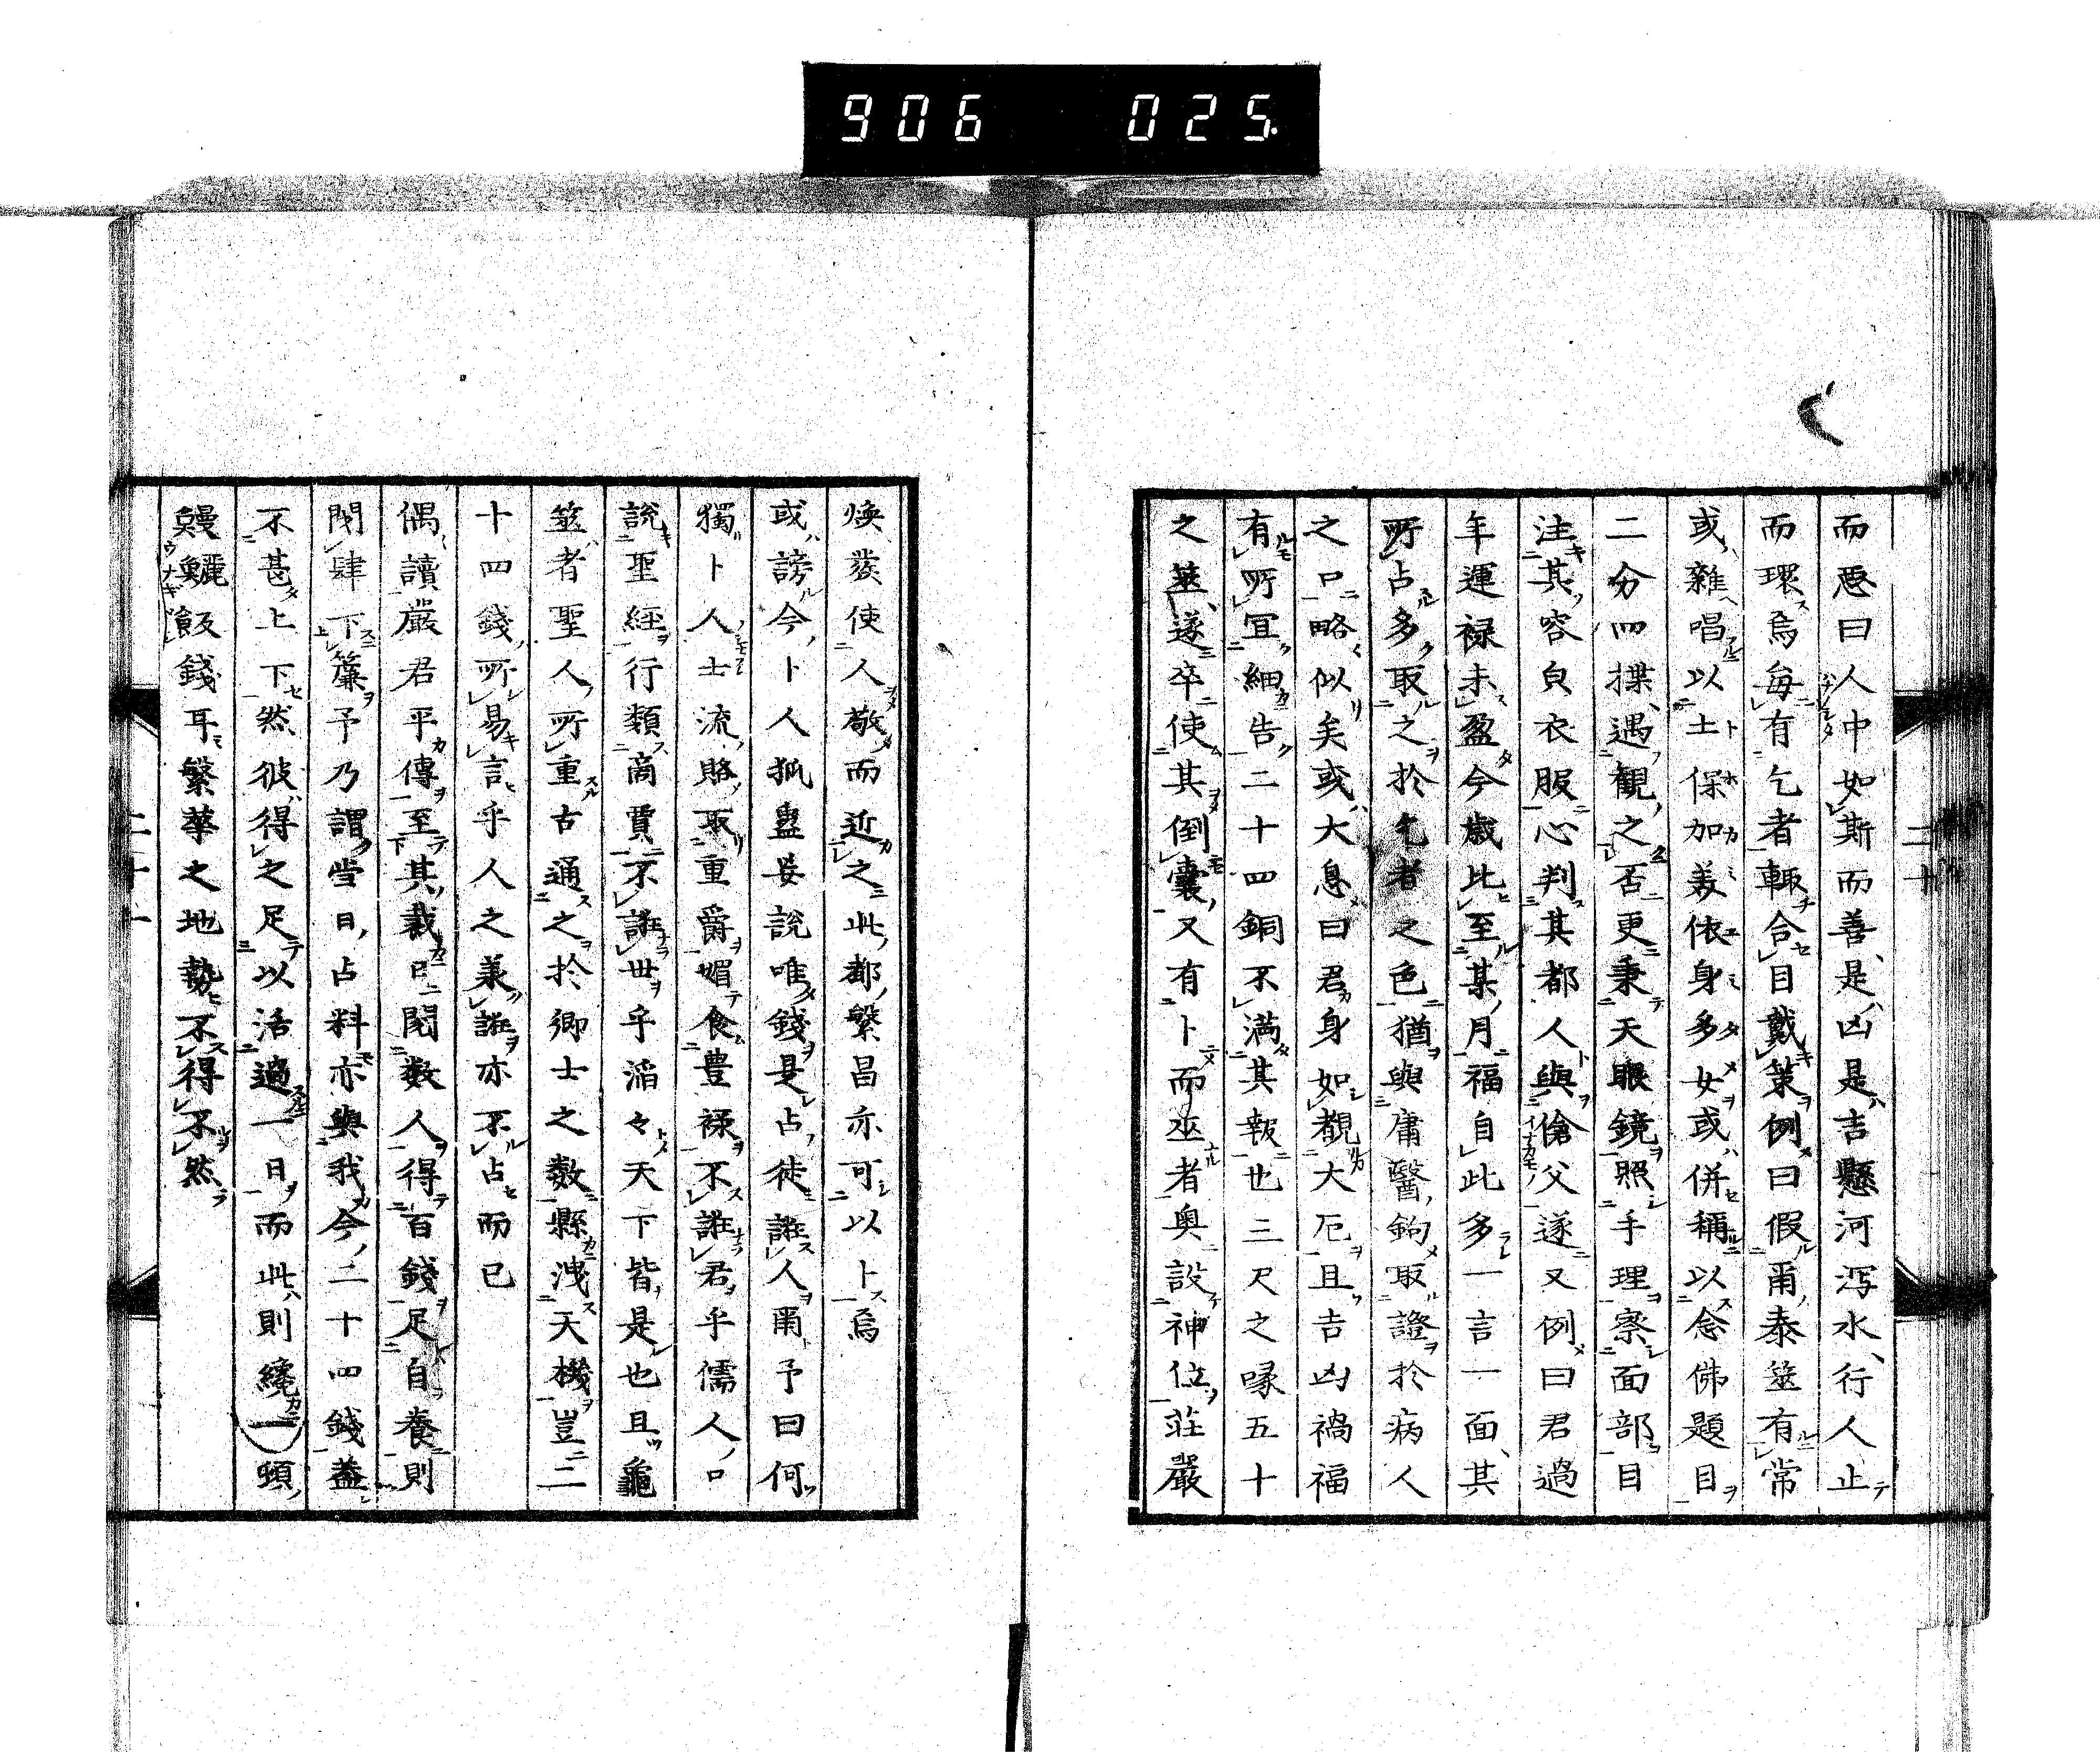 906 025
二十
而惡曰人中如斯而善是凶是吉懸河瀉水行人止
而環焉每有乞者輙合目戴䇲例曰假爾泰筮有常
或雜唱以土保加美依身多女或併稱以念佛題目
二分四揲遇觀之否更秉天眼鏡照手理察面部目
注其容皃衣服心判其都人與傖父遂又例曰君過
年運禄未盈今歲比至某月福自此多一言一面其
所占多取之於乞者之色猶與庸醫鉤取證於病人
之口略似矣或大息曰君身如覩大厄且吉凶禍福
有所冝細告二十四銅不滿其報也三尺之喙五十
之筮遂卒使其倒囊又有卜而巫者奥設神位荘嚴
煥發使人敬而近之此都繁昌亦可以卜焉
或謗今卜人狐蠱妄說唯錢是占徒誑人爾予曰何
獨卜人士流賂取重爵媚食豊祿不誑君乎儒人口
說聖經行類商賈不誑世乎滔々天下皆是也且龜
筮者聖人所重古通之於卿士之数縣洩天機豈二
十四錢所易言乎人之兼誑亦不占而已
偶讀嚴君平傳至其裁日閱数人得百錢足自養則
閉肆下簾予乃謂當日占料亦與我今二十四錢蓋
不甚上下然彼得之足以活過一日而此則纔一頓
鰻鱺飯錢耳繁華之地勢不得不然
ウナギ
二十一